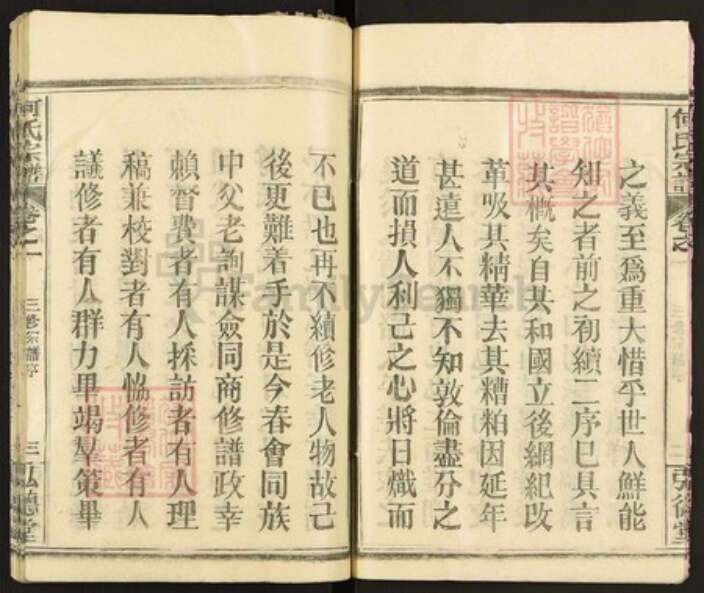 之義至爲重大惜乎世人鮮能
知之者前之初續二序已具言
其槪矣自共和國立後綱紀改
革吸其精華去其糟粕因延年
甚遠人不獨不知敦倫盡分之
道而損人利己之心將日熾而
不已也再不續修老人物故己
後更難着手於是今春會同族
中父老詢謀僉同商修譜政幸
賴督費者有人採訪者有人理
稿兼校對者有人恊修者有人
議修者有人群力畢竭羣策畢
何氏宗譜
卷之一
三修宗譜序
三
弘德堂
FamilySearch